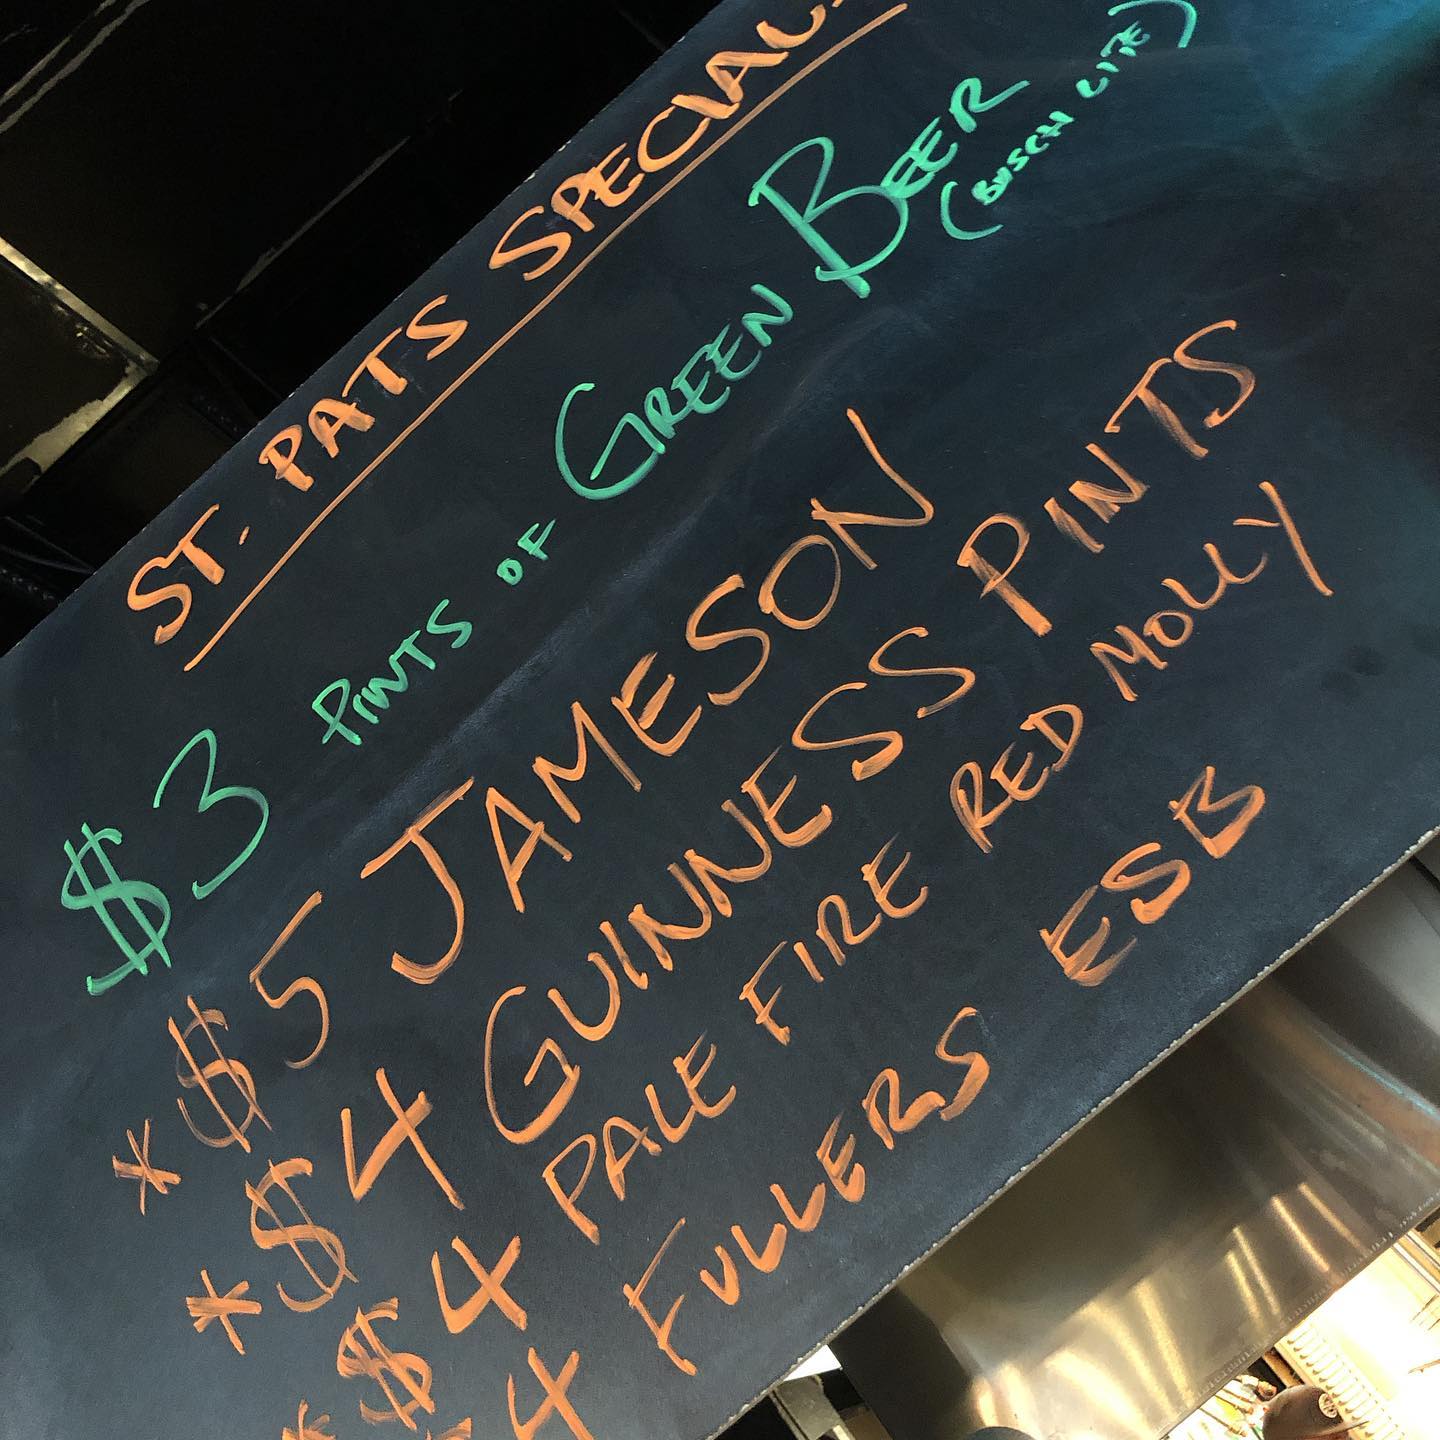 ST. PATS SPECIALS
$3 PINTS OF GREEN BEER
(BUSCH LITE)
* $5 JAMESON
* $4 GUINNESS PINTS
* $4 PALE FIRE RED MOLLY
* $4 FULLERS ESB